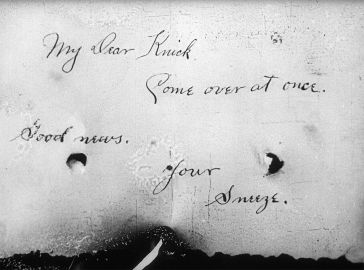 My Dear Knick
Come over at once.
Good news.
Your
Sneeze.